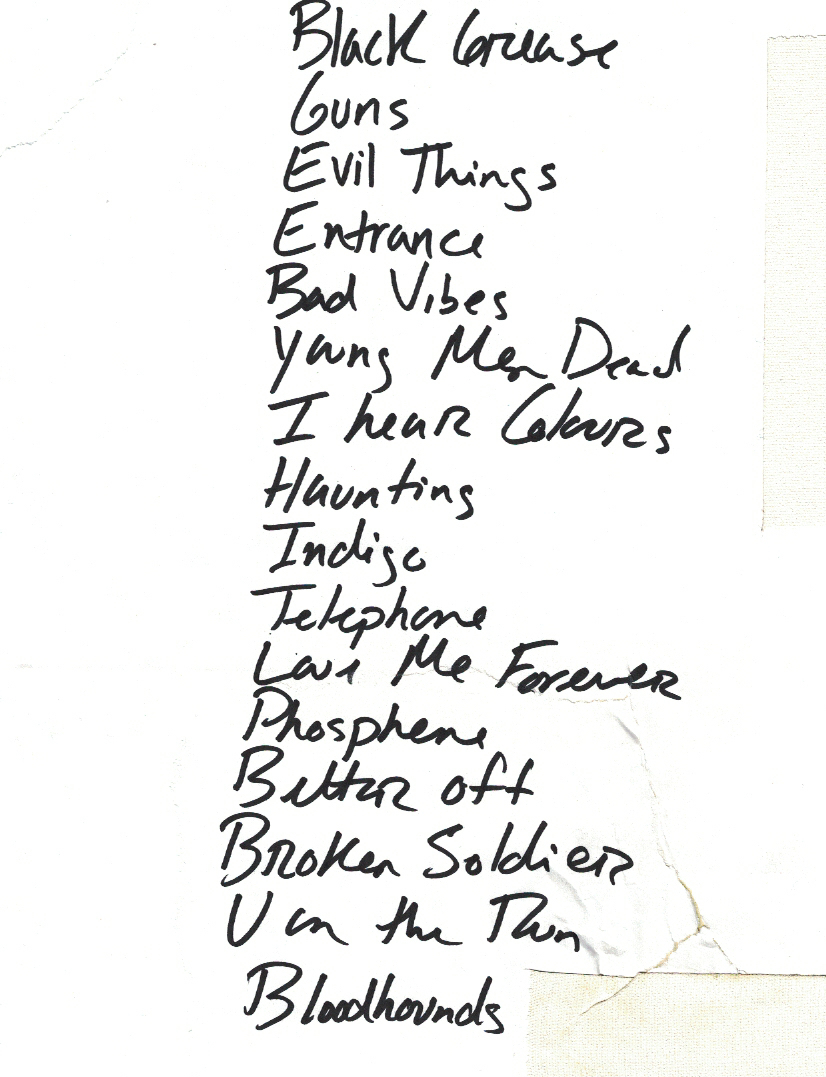 Black Grease
Guns
Evil Things
Entrance
Bad Vibes
Young Men Dead
I hear Colours
Haunting
Indigo
Telephone
Love Me Forever
Phosphene
Better off
Broken Soldier
U on the Run
Bloodhounds